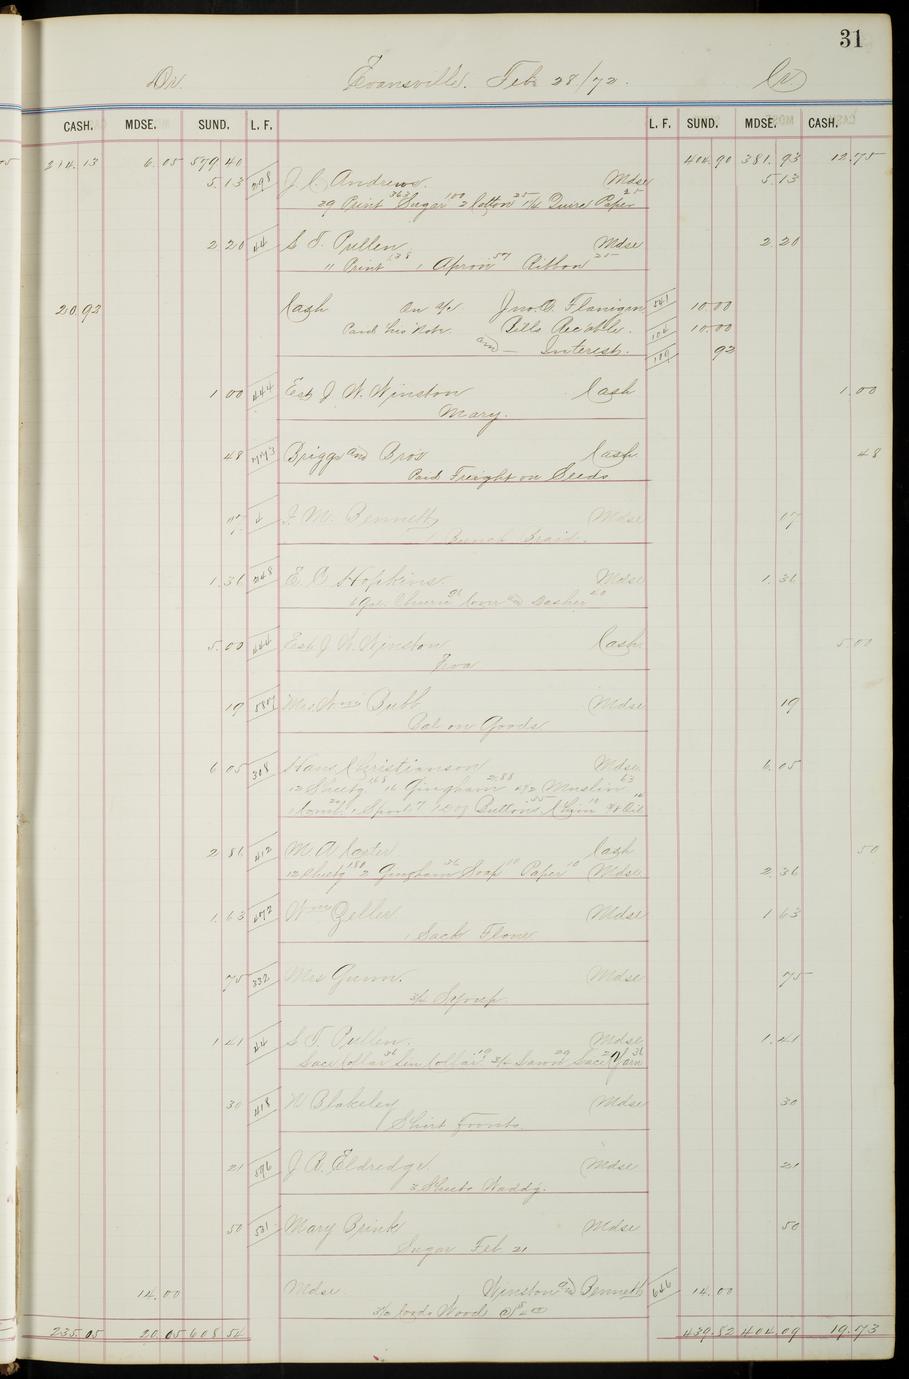 31
Dr. Evansville. Feb 28/72. Cr
CASH. MDSE. SUND. L. F. L. F. SUND. MDSE. CASH.
214.13 6.05 579 40 404.90 381.93 12.75
5.13 298 J. C. Andrews. Mdse 5.13
29 Print 363 Sugar 100 2 Cotton 25 1/4 Quire Paper 25
2 20 44 S. T. Pullen Mdse 2.20
11 Print 138 1 Apron 57 Ribbon 25
20.92 Cash On a/c Jno. A. Flanigan 541 10.00
Paid his Note. Bills Receble. 106 10.00
and — Interest. 109 92
1 00 444 Est J. W. Winston Cash 1.00
Mary.
48 773 Briggs and Bros Cash 48
Paid Freight on Seeds
4 J. M. Bennett Mdse 17
1 Bunch Braid.
1.36 248 E. C. Hopkins Mdse 1.36
Cover and Dasher
5.00 444 Est J. W. Winston Cash 5.00
19 Mrs Wm Bubb Mdse 19
Bal on Goods
6 05 308 Hans Christianson Mdse 6.05
12 Sheetg 168 16 Gingham 2.88 Muslin 63
Buttons
2 86 412 M. A. Carter Cash 50
12 Sheetg 180 2 Gingham 36 Soap 10 Paper 10 Mdse 2.36
1.63 472 Wm Zeller Mdse 1 63
1 Sack Flour
75 332 Mrs Gunn. Mdse 75
3/4 Syrup
1 41 44 S. T. Pullen. Mdse 1.41
Lace Collar 36 Lin Collar 19 3/4 Lawn 29 Lace Yarn
30 418 W Blakeley Mdse 30
Shirt Fronts.
21 596 J. R. Eldredge Mdse 21
3 Sheets Waddg.
50 531 Mary Brink Mdse 50
Sugar Feb 21
14.00 Mdse Winston and Bennett 646 14.00
loads Wood
235.05 20.05 608 54 439.82 404.09 19.73